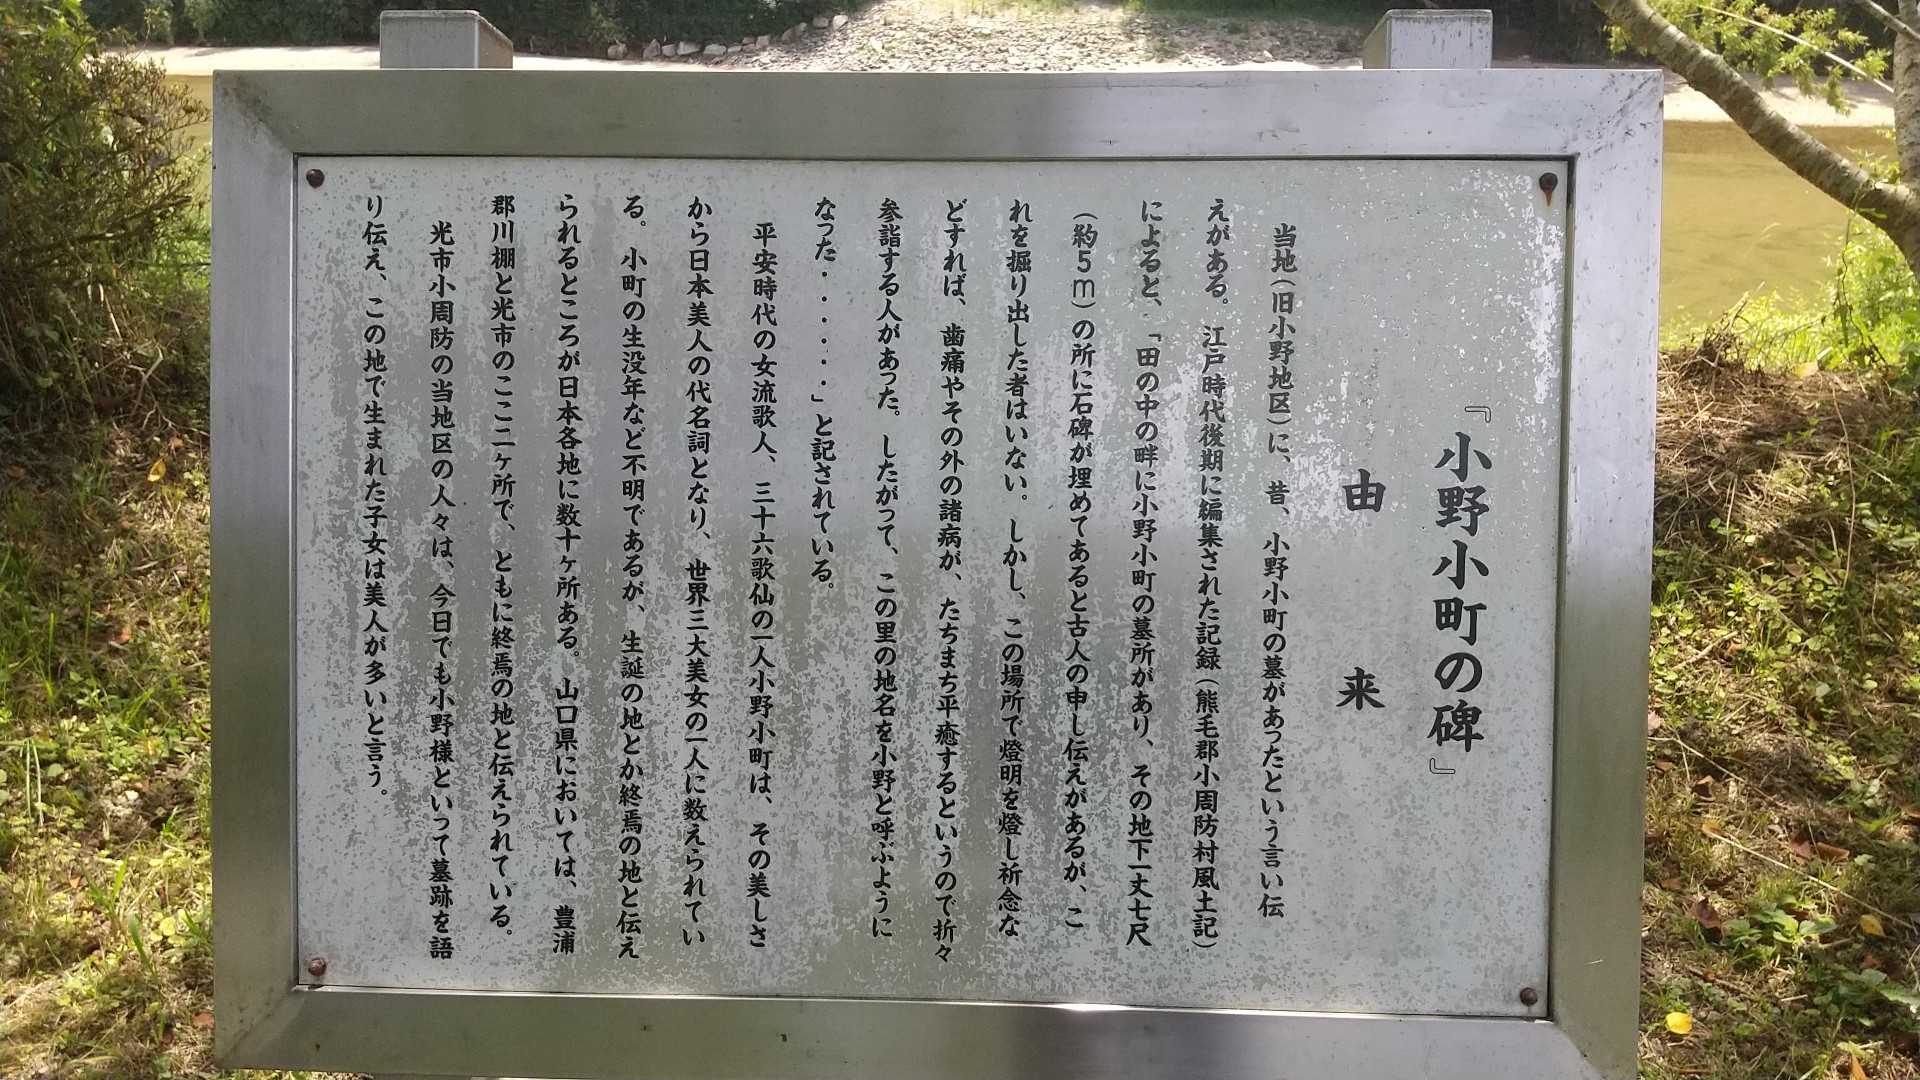 『小野小町の碑』
由来
当地(旧小野地区)に、昔、小野小町の墓があったという言い伝
えがある。江戸時代後期に編集された記録(熊毛郡小周防村風土記)
によると、「田の中の畔に小野小町の墓所があり、その地下一丈七尺
(約5m)の所に石碑が埋めてあると古人の申し伝えがあるが、こ
れを掘り出した者はいない。しかし、この場所で燈明を燈し祈念な
どすれば、歯痛やその外の諸病が、たちまち平癒するというので折々
参詣する人があった。したがって、この里の地名を小野と呼ぶように
なった・・・・・・」と記されている。
平安時代の女流歌人、三十六歌仙の一人小野小町は、その美しさ
から日本美人の代名詞となり、世界三大美女の一人に数えられてい
る。小町の生没年など不明であるが、生誕の地とか終焉の地と伝え
られるところが日本各地に数十ヶ所ある。山口県においては、豊浦
郡川棚と光市のここ二ヶ所で、ともに終焉の地と伝えられている。
光市小周防の当地区の人々は、今日でも小野様といって墓跡を語
り伝え、この地で生まれた子女は美人が多いと言う。